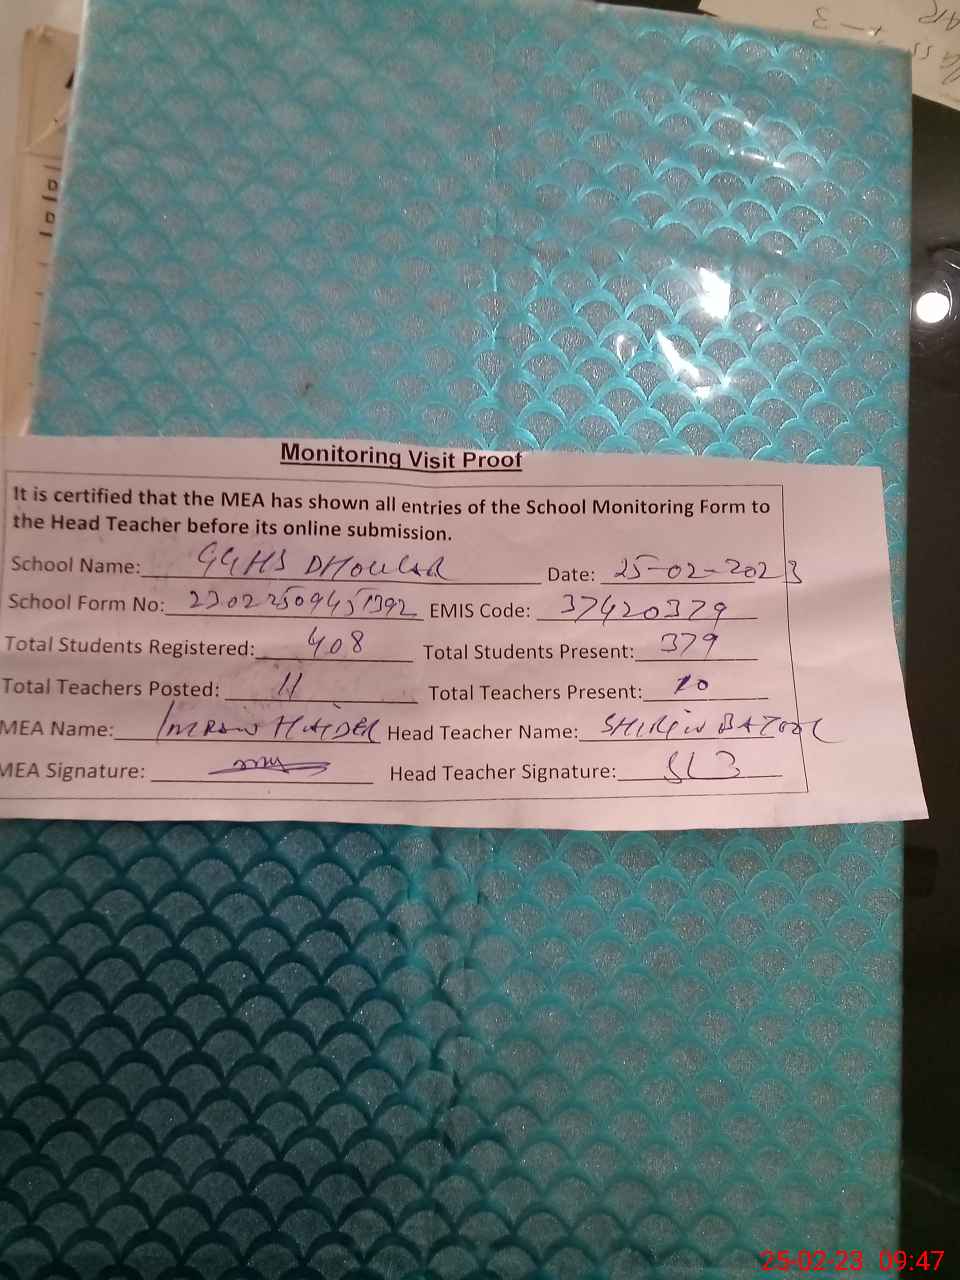 Monitoring Visit Proof
It is certified that the MEA has shown all entries of the School Monitoring Form to
the Head Teacher before its online submission.
School Name: GGHS DHOULAR Date: 25-02-2023
School Form No: 23022509451392 EMIS Code: 37420379
Total Students Registered: 408 Total Students Present: 379
Total Teachers Posted: 11 Total Teachers Present: 10
MEA Name: IMRAN HAIDER Head Teacher Name: SHIRIN BATOOL
MEA Signature: Head Teacher Signature:
25-02-23 09:47